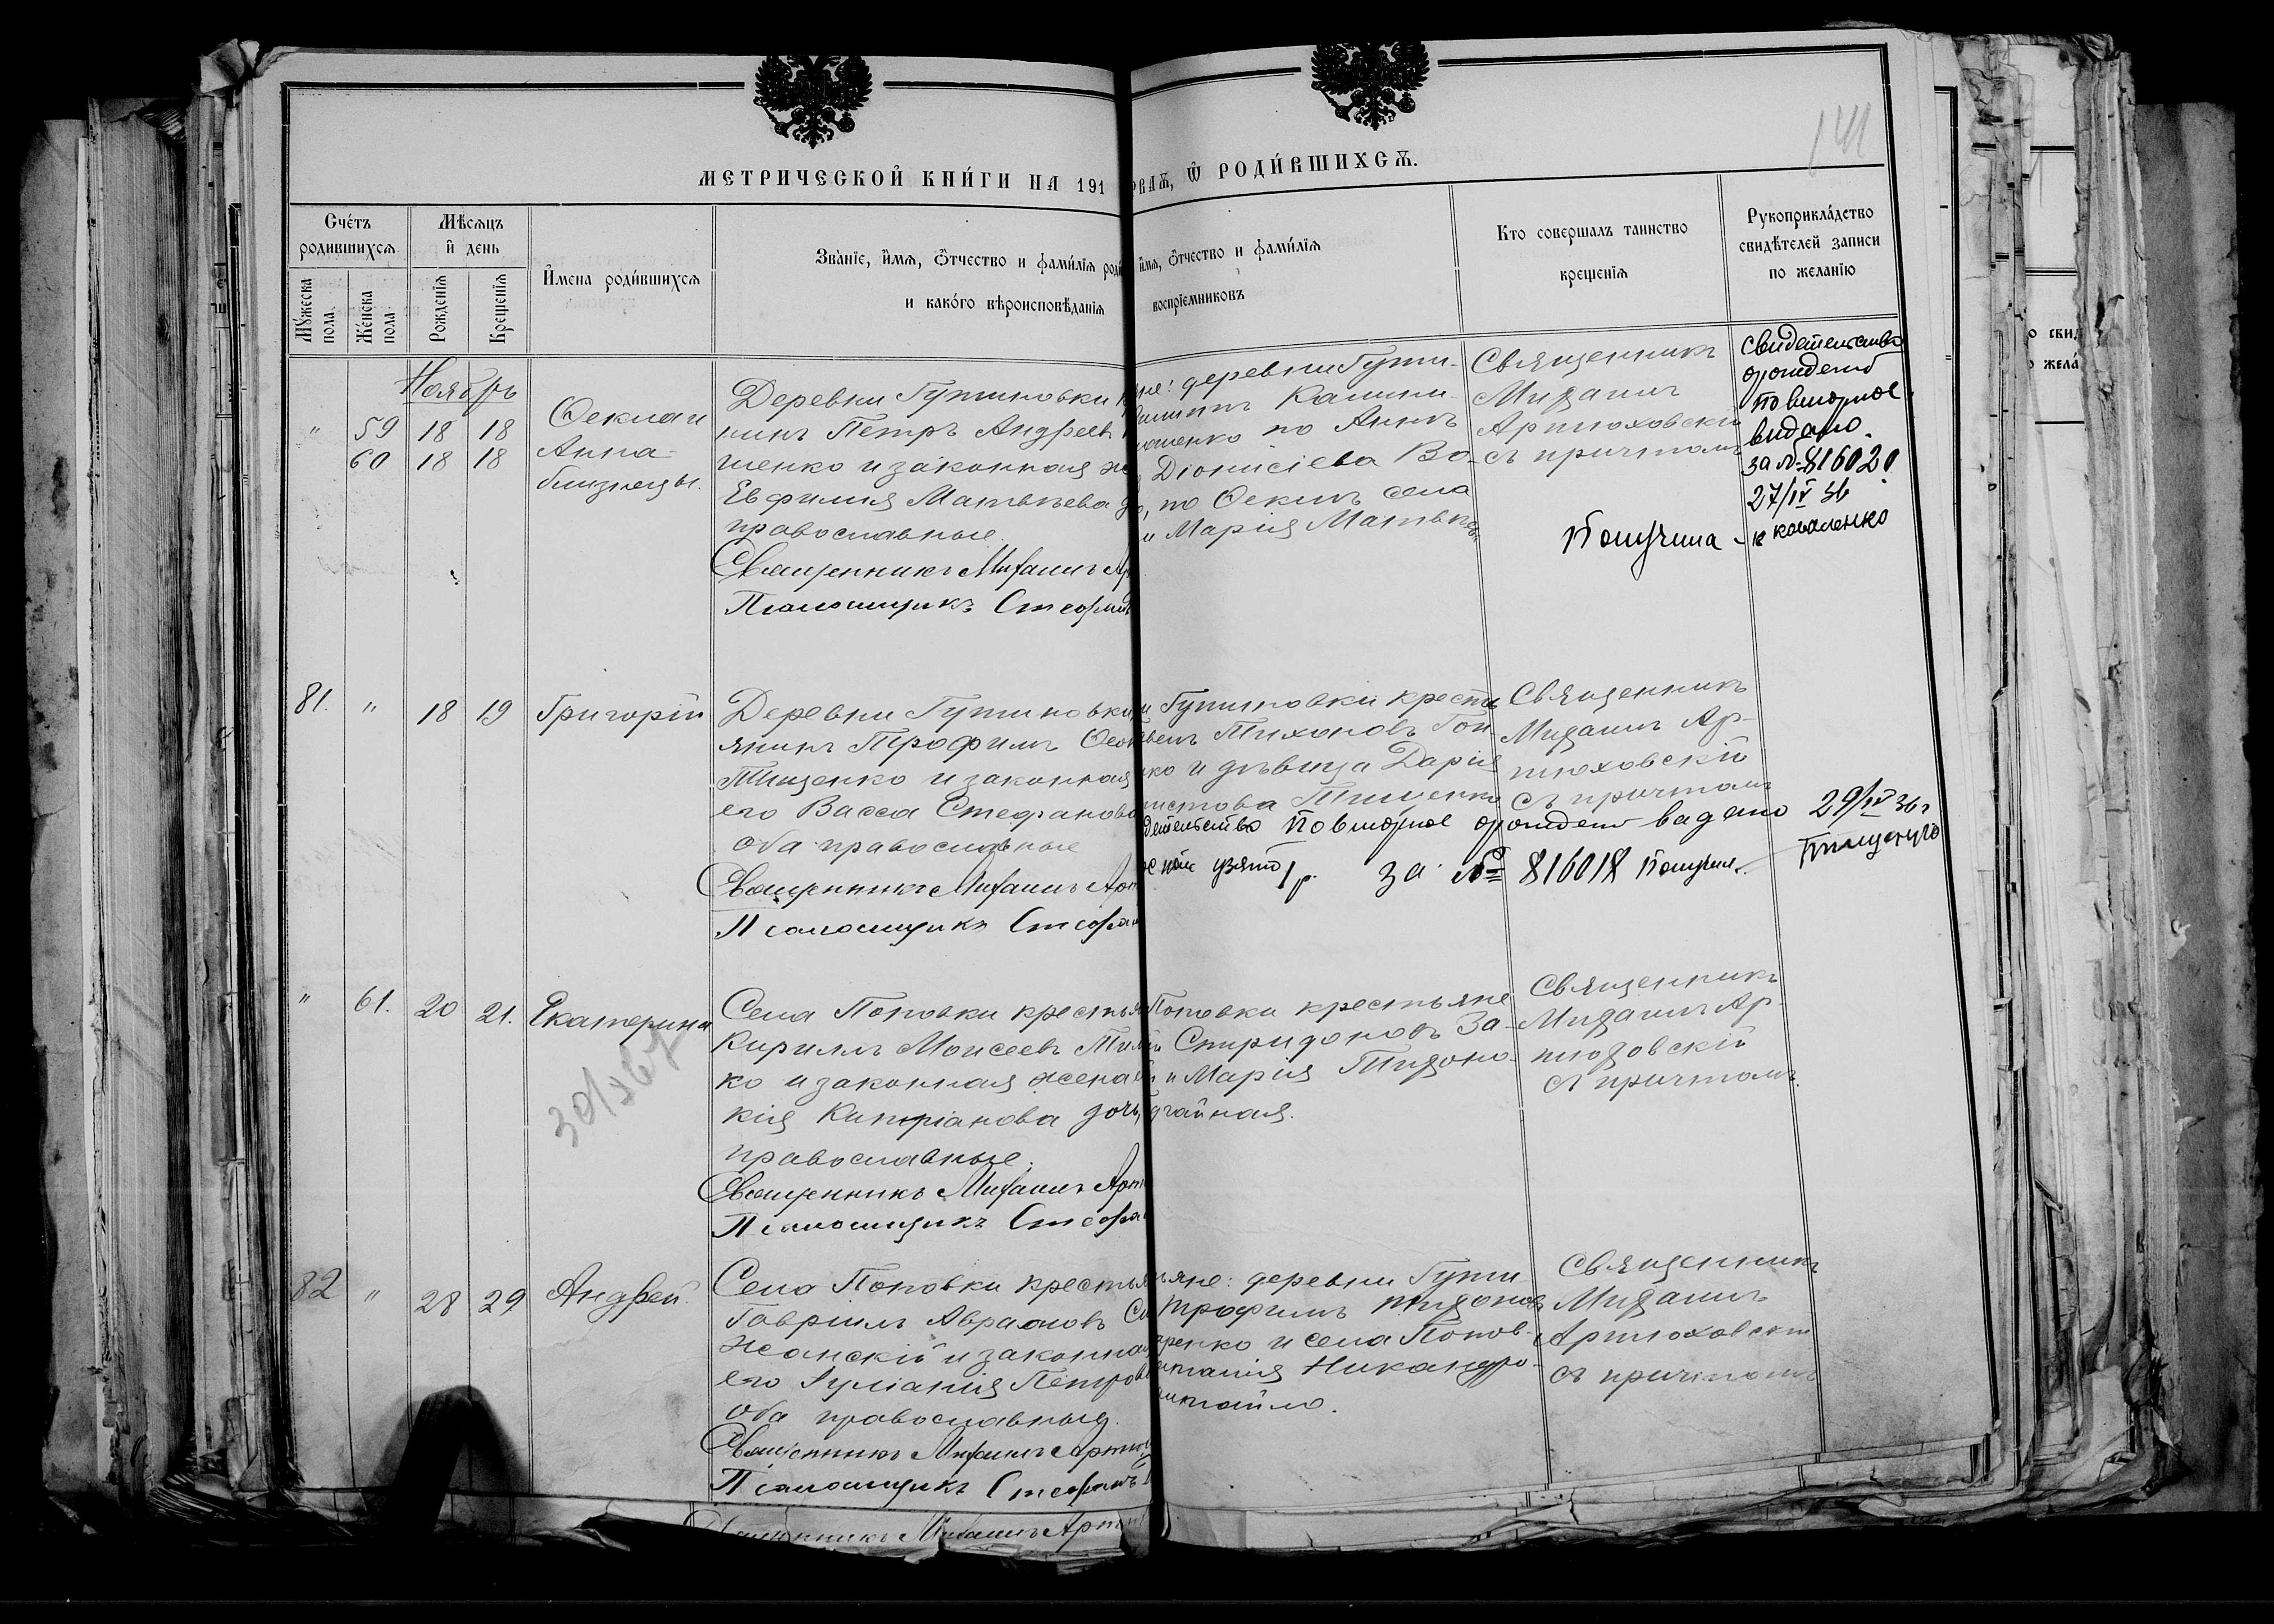 141
МЕТРИЧЕСКОЙ КНИ́ГИ НА 191
РВАѦ, Ѿ РОДИ́ВШИХСѦ.
Сче́тъ родившихсѧ
Мꙋ́жеска пола.
Же́нска пола.
Мѣ́сѧцъ и҆ день
Рожде́нїѧ
Креще́нїѧ
И҆мена роди́вшихсѧ
Зва́нїе, и҆́мѧ, ѻ҆́тчество и фами́лїѧ роди
и како́го вѣроисповѣ́данїѧ
и҆мѧ, ѻ҆́тчество и фами́лїѧ
воспрїемниковъ
Кто совершалъ таинство
крещенїѧ
Рукоприкла́дство
свидѣтелей записи
по желанїю
Ноябрь
" 59 18 18
60 18 18
Ѳекла и
Анна
близнецы.
Деревни Гутиновки
нинъ Петръ Андреевъ
ченко и законная же
Евфимія Матвѣева
православные.
Священникъ Михаилъ Ар
Псаломщикъ Стефанъ
яне: деревни Гути-
Филиппъ Калини-
по Аннѣ
Діонисіева
по Ѳеклѣ села
и Марія Матвѣев
Священникъ
Михаилъ
Артюховскій
съ причтомъ
свидетельство
орождении
повторное
видано
за №816020
27/IV 36
Получила - к коваленко
81. " 18 19 Григорій
Деревни Гутиновки
янинъ Трофимъ Ѳеок
Тищенко и законная
его Васса Стефанова
оба православные
Священникъ Михаилъ Арт
Псаломщикъ Стефан
и Гутиновки крестья
Тихоновъ Гон
ко и дѣвица Дарія
истова Тищенко
Священникъ
Михаилъ Ар-
тюховскій
съ причтомъ
детельство повторное орожден видано 29/IV 36г
узято 1 р. за № 816018 Получил
" 61. 20 21. Екатерина
Села Поповки крестья
Кирилъ Моисеевъ Тим
ко и законная жена
кія Кипріанова дочь,
православные.
Священникъ Михаилъ Арт
Псаломщикъ Стефа
Поповки крестьяне
Спиридоновъ За-
и Марія Тихоно-
Священникъ
Михаилъ Ар-
тюховскій
съ причтомъ.
82 " 28 29 Андрей
Села Поповки крестья
Гавріилъ Авраамовъ Си
жанскій и законная
его Іуліанія Петрова
оба православные.
Священникъ Михаилъ Артю
Псаломщикъ Стефанъ
яне: деревни Гути
Трофимъ Тихоновъ
ренко и села Попов-
Никандро-
Священникъ
Михаилъ
Артюховскій
съ причтомъ
Священникъ Михаилъ Артю